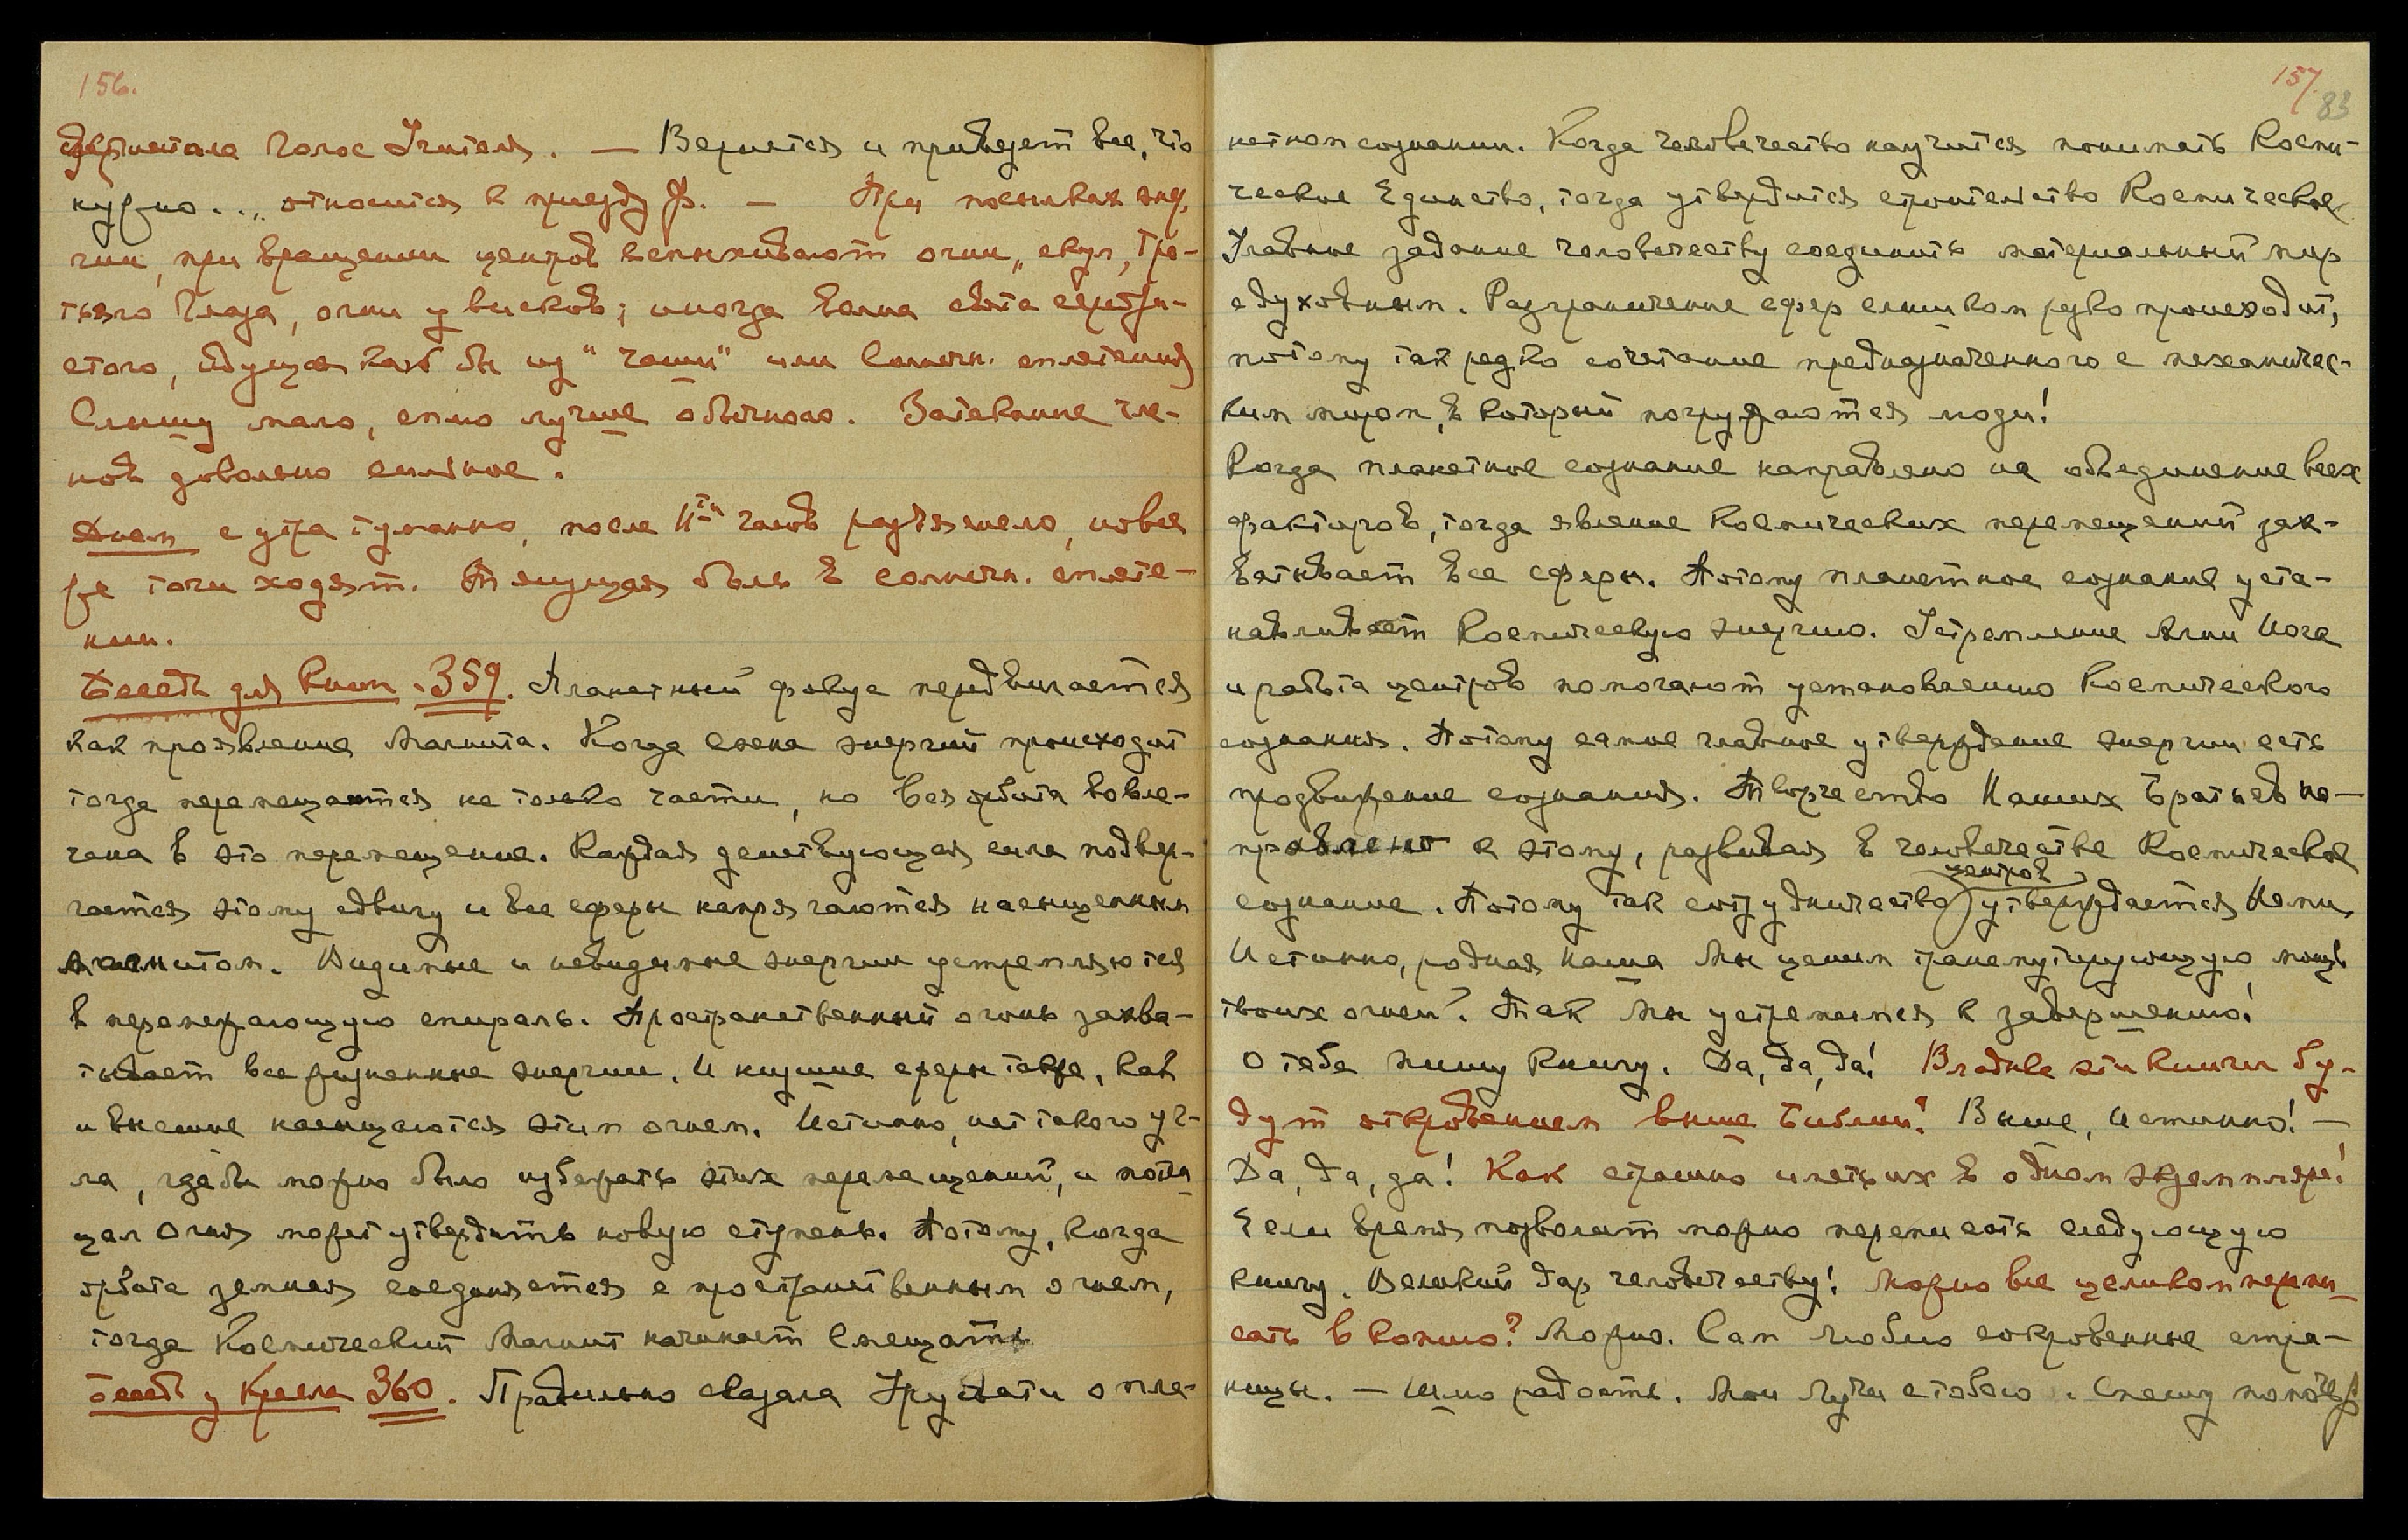 156.
голос Учителя. — Вернется и приведет все, что
нужно... относится к приезду Ф. — При посылках энер.
гии, при вращении центров вспыхивают огни, скул, тре-
тьего Глаза, огни у висков; иногда волна света серебри-
стого, идущая как бы из "чаши" или Солнечн. сплетения
Слышу мало, сплю лучше обычного. Затекание чле-
нов довольно сильное.
Днем с утра туманно, после 11ти часов разъяснело, но все
же тучи ходят. Тянущая боль в солнечн. сплете-
нии.
Беседа для Книги. 359. Планетный фокус передвигается
как проявление Магнита. Когда смена энергий происходит
тогда перемещается не только части, но вся орбита вовле-
чена в это перемещение. Каждая действующая сила подвер-
гается этому сдвигу и все сферы напрягаются насыщенным
магнитом. Видимые и невидимые энергии устремляются
в перемежающуюся спираль. Пространственный огонь захва-
тывает все жизненные энергии. И низшие сферы также, как
и высшие насыщаются этим огнем. Истинно, нет такого уг-
ла, где бы можно было избежать этих перемещений, и потен
цал Огня может утвердить новую ступень. Потому, когда
орбита земная соединяется с пространственным огнем,
тогда Космический Магнит начинает смещать
Беседа у Кресла 360. Правильно сказала Урусвати о пла-
157.
83
нетном сознании. Когда человечество научится понимать Косми-
ческое Единство, тогда утвердится строительство Космическое
Главное задание человечеству соединить материальный мир
с духовным. Разграничение сфер слишком резко происходит,
потому так редко сочетание предназначенного с механичес-
ким миром, в который погружаются люди!
Когда планетное сознание направлено на объединение всех
факторов, тогда явление Космических перемещений зах-
ватывает все сферы. Потому планетное сознание уста-
навливает Космическую энергию. Устремление Агни Иога
и работа центров помогают установлению Космического
сознания. Потому самое главное утверждение энергии есть
продвижение сознания. Творчество Наших Братьев на-
правлено к этому, развивая в человечестве Космическое
сознание. Потому так сотрудничество центров утверждается Нами.
Истинно, родная Наша Мы ценим трансмутирующую мощь
твоих огней. Так Мы устремимся к завершению!
О тебе пишу Книгу. Да, да, да! Владыка эти книги бу-
дут откровением выше Библии? Выше, истинно! —
Да, да, да! Как страшно иметь их в одном экземпляре!
Если время позволит можно переписать следующую
книгу. Великий дар человечеству! Можно все целиком перепи
сать в копию? Можно. Сам люблю сокровенные стра-
ницы. — Шлю радость. Мои Лучи с тобою. Спешу помочь